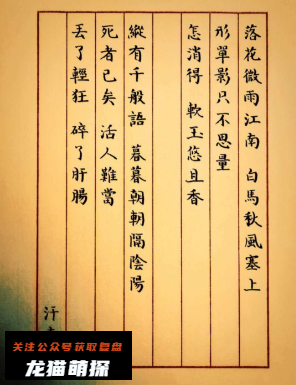 落花微雨江南 白馬秋風塞上
形單影只不思量
怎消得 軟玉悠且香
縱有千般語 暮暮朝朝隔陰陽
死者已矣 活人難當
丟了輕狂 碎了肝腸
汗
关注公众号获取复盘
龙猫萌探